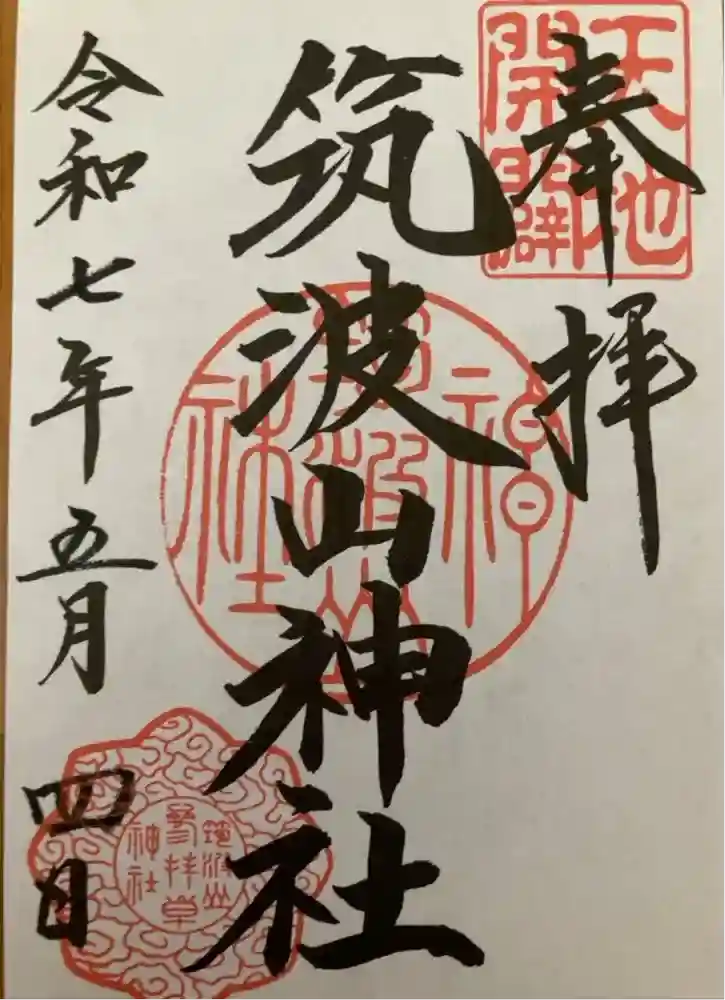 奉拝
天地開闢
筑波山神社
筑波山神社
令和七年五月四日
筑波山神社参拝章